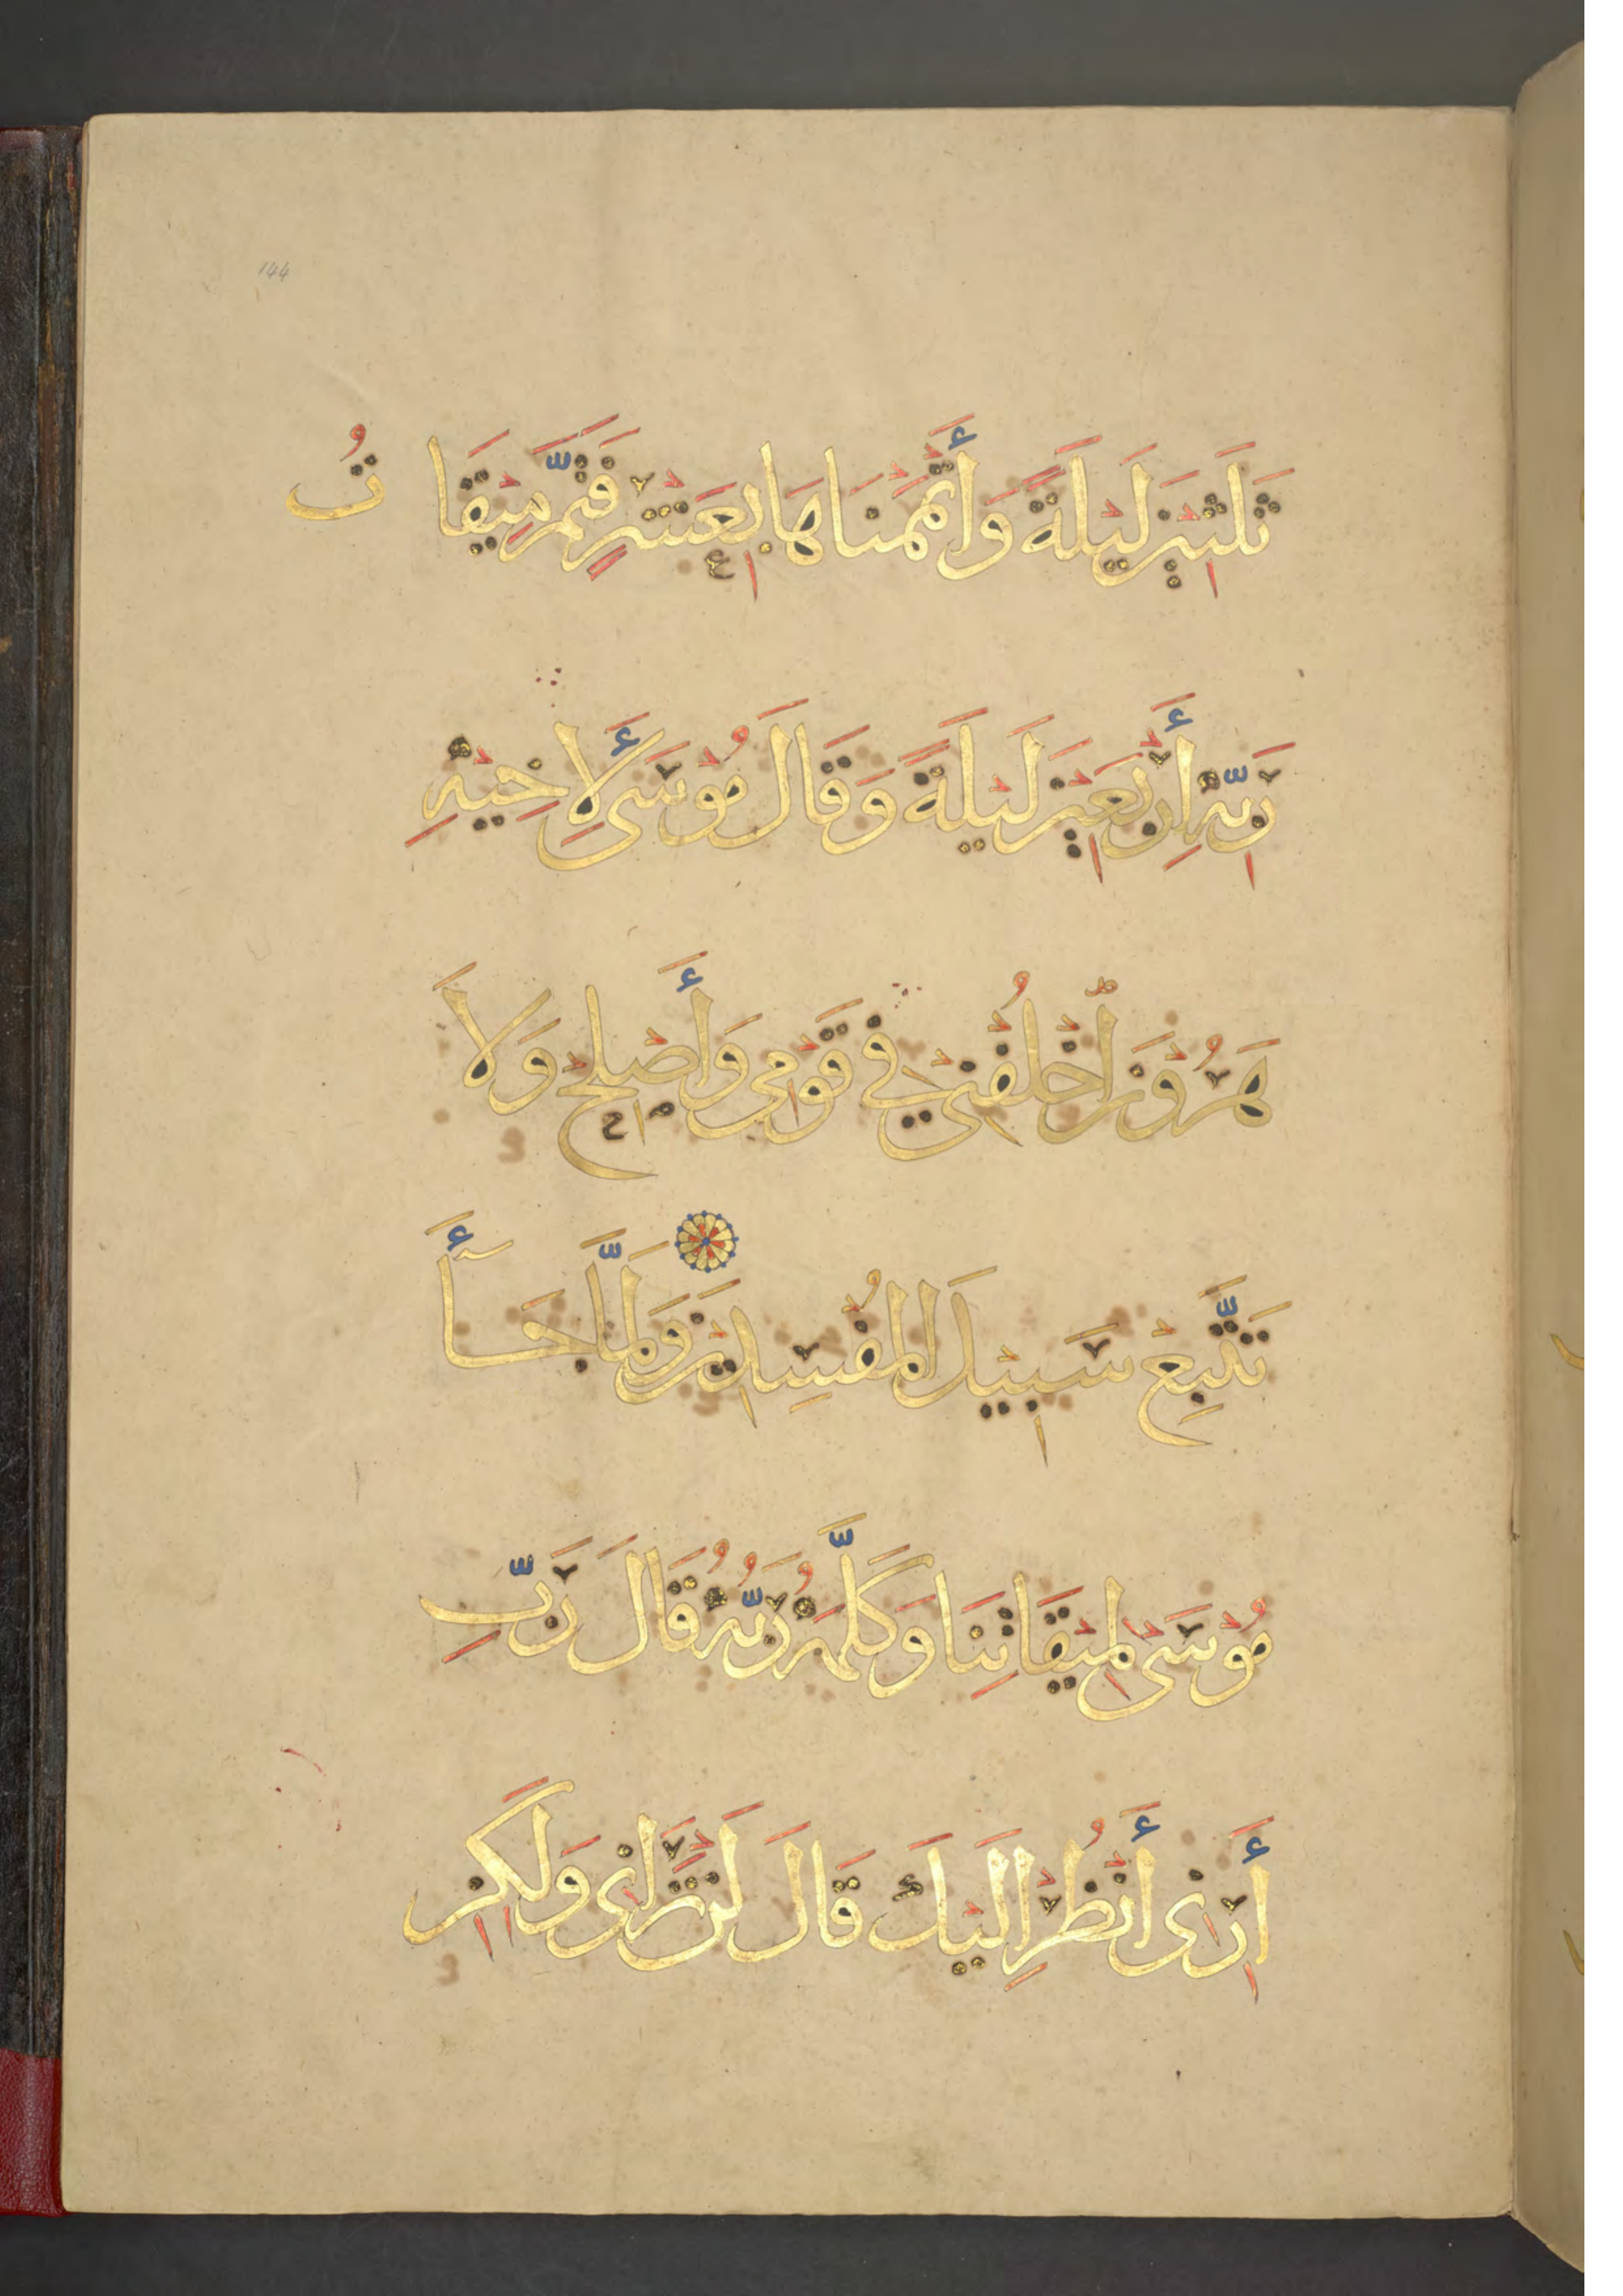 144
ثَلَثِينَ لَيْلَةً وَأَتْمَمْنَاهَا بِعَشْرٍ فَتَمَّ مِيْقَاتُ
رَبِّهِ أَرْبَعِيْنَ لَيْلَةً وَقَالَ مُوْسَى لِأَخِيْهِ
هَرُوْنَ اخْلُفْنِيْ فِي قَوْمِي وَأَصْلِحْ وَلَا
تَتَّبِعْ سَبِيْلَ الْمُفْسِدِيْنَ وَلَمَّا جَآءَ
مُوْسَى لِمِيْقَاتِنَا وَكَلَّمَهُ رَبُّهُ قَالَ رَبِّ
أَرِنِى أَنْظُرْ إِلَيْكَ قَالَ لَنْ تَرَانِى وَلَكِنِ